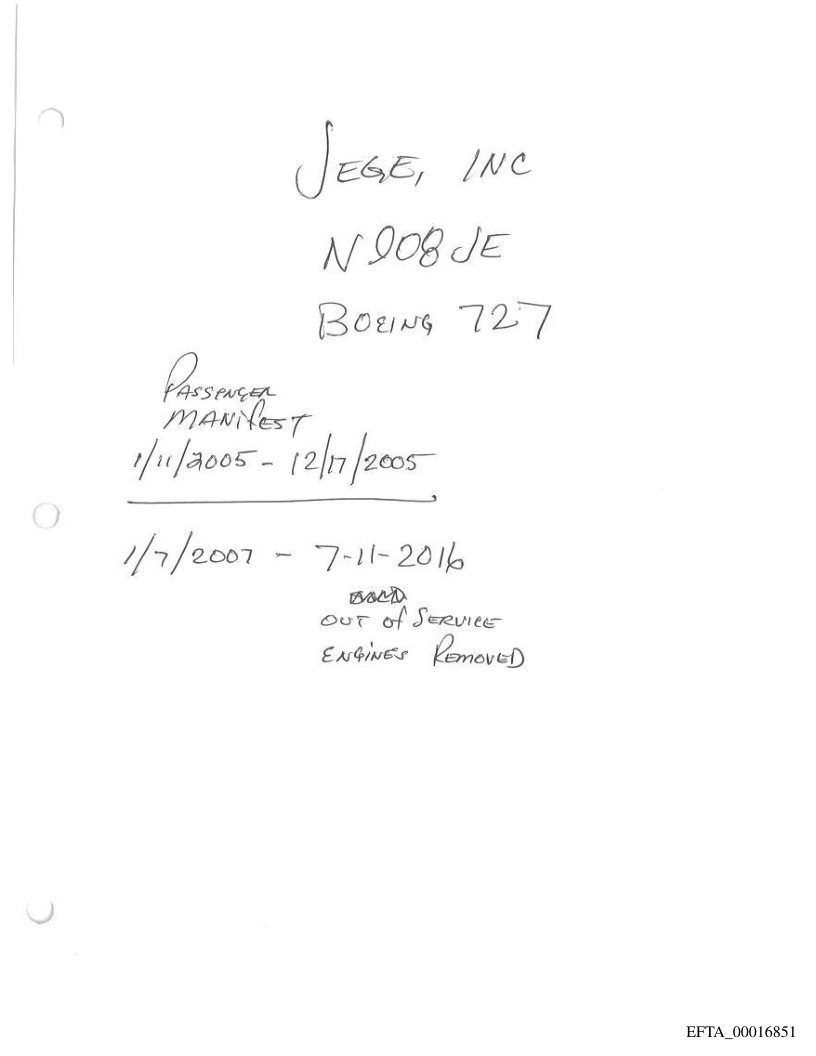 JEGE, INC
N908JE
BOEING 727
PASSENGER
MANIFEST
1/11/2005 - 12/17/2005
1/7/2007 - 7-11-2016
OUT of SERVICE
ENGINES REMOVED
EFTA_00016851